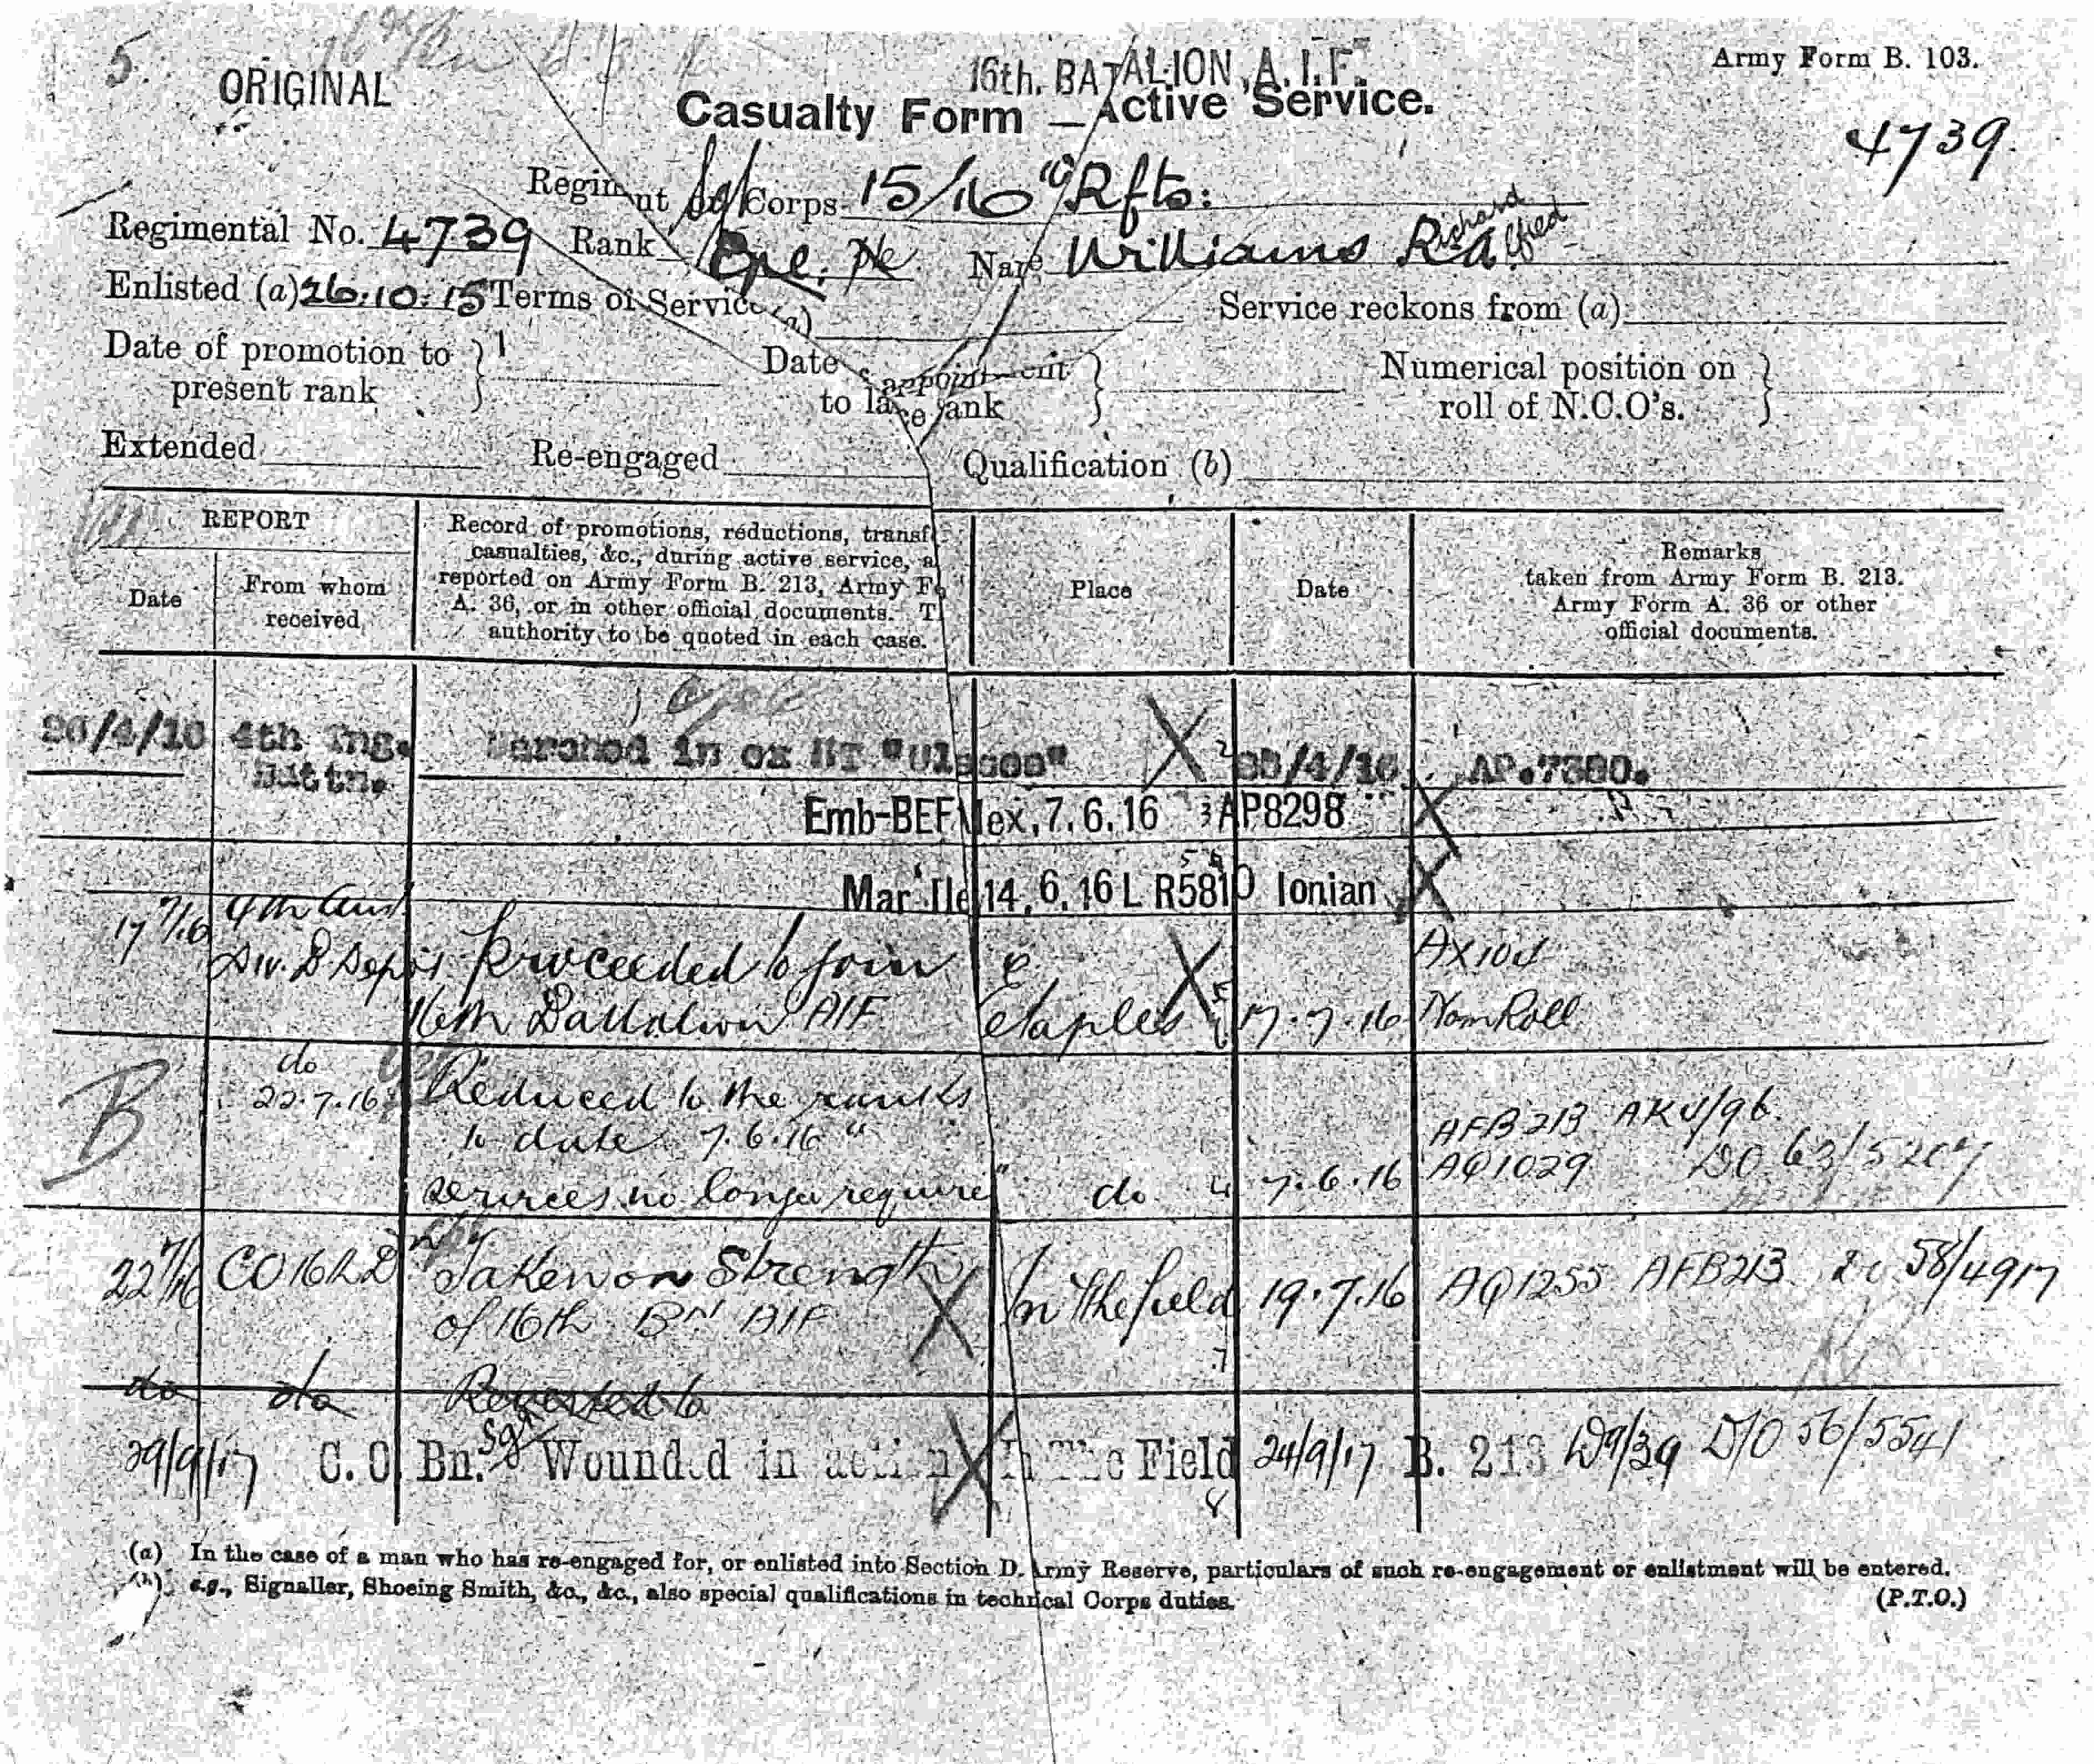 5.
ORIGINAL
16th. BATALION A.I.F.
Army Form B. 103.
Casualty Form — Active Service.
4739.
Regiment or Corps 15/16 Rfts:
Regimental No. 4739 Rank Cpl. Pte Name Williams R. A. Richard Alfred
Enlisted (a) 26.10.15 Terms of Service (a) Service reckons from (a)
Date of promotion to present rank } Date appointment to lance rank } Numerical position on roll of N.C.O's. }
Extended Re-engaged Qualification (b)
REPORT
Date
From whom received
Record of promotions, reductions, transf
casualties, &c., during active service, a
reported on Army Form B. 213, Army Fo
A. 36, or in other official documents. T
authority to be quoted in each case.
Place
Date
Remarks
taken from Army Form B. 213.
Army Form A. 36 or other
official documents.
4th Tng. Marched in ex HT "Ulysses" X /4/16 AP.7380.
Battn.
Emb-BEF Alex, 7.6.16 AP8298 X
Mar'lle 14.6.16 L R5810 Ionian X
17 7/16 4th Aust
Div. B Depot Proceeded to join X
16th Battalion AIF Etaples 17.7.16 Nom Roll
B
do
22.7.16 Reduced to the ranks
to date 7.6.16 "
services no longer require" do 4 7.6.16 AFB 213 AK4/96. AQ1029 DO 63/5207
22 7/16 CO 16th B Taken on Strength
of 16th BN AIF X In the field 19.7.16 AQ1255 AFB213 58/4917
do do Reverted to
7
29/9/17 C.O. Bn. Sgt Wounded in action X In The Field 24/9/17 B. 213 W9/39 D/O 56/5541
8
(a) In the case of a man who has re-engaged for, or enlisted into Section D. Army Reserve, particulars of such re-engagement or enlistment will be entered.
(b) e.g., Signaller, Shoeing Smith, &c., &c., also special qualifications in technical Corps duties.
(P.T.O.)